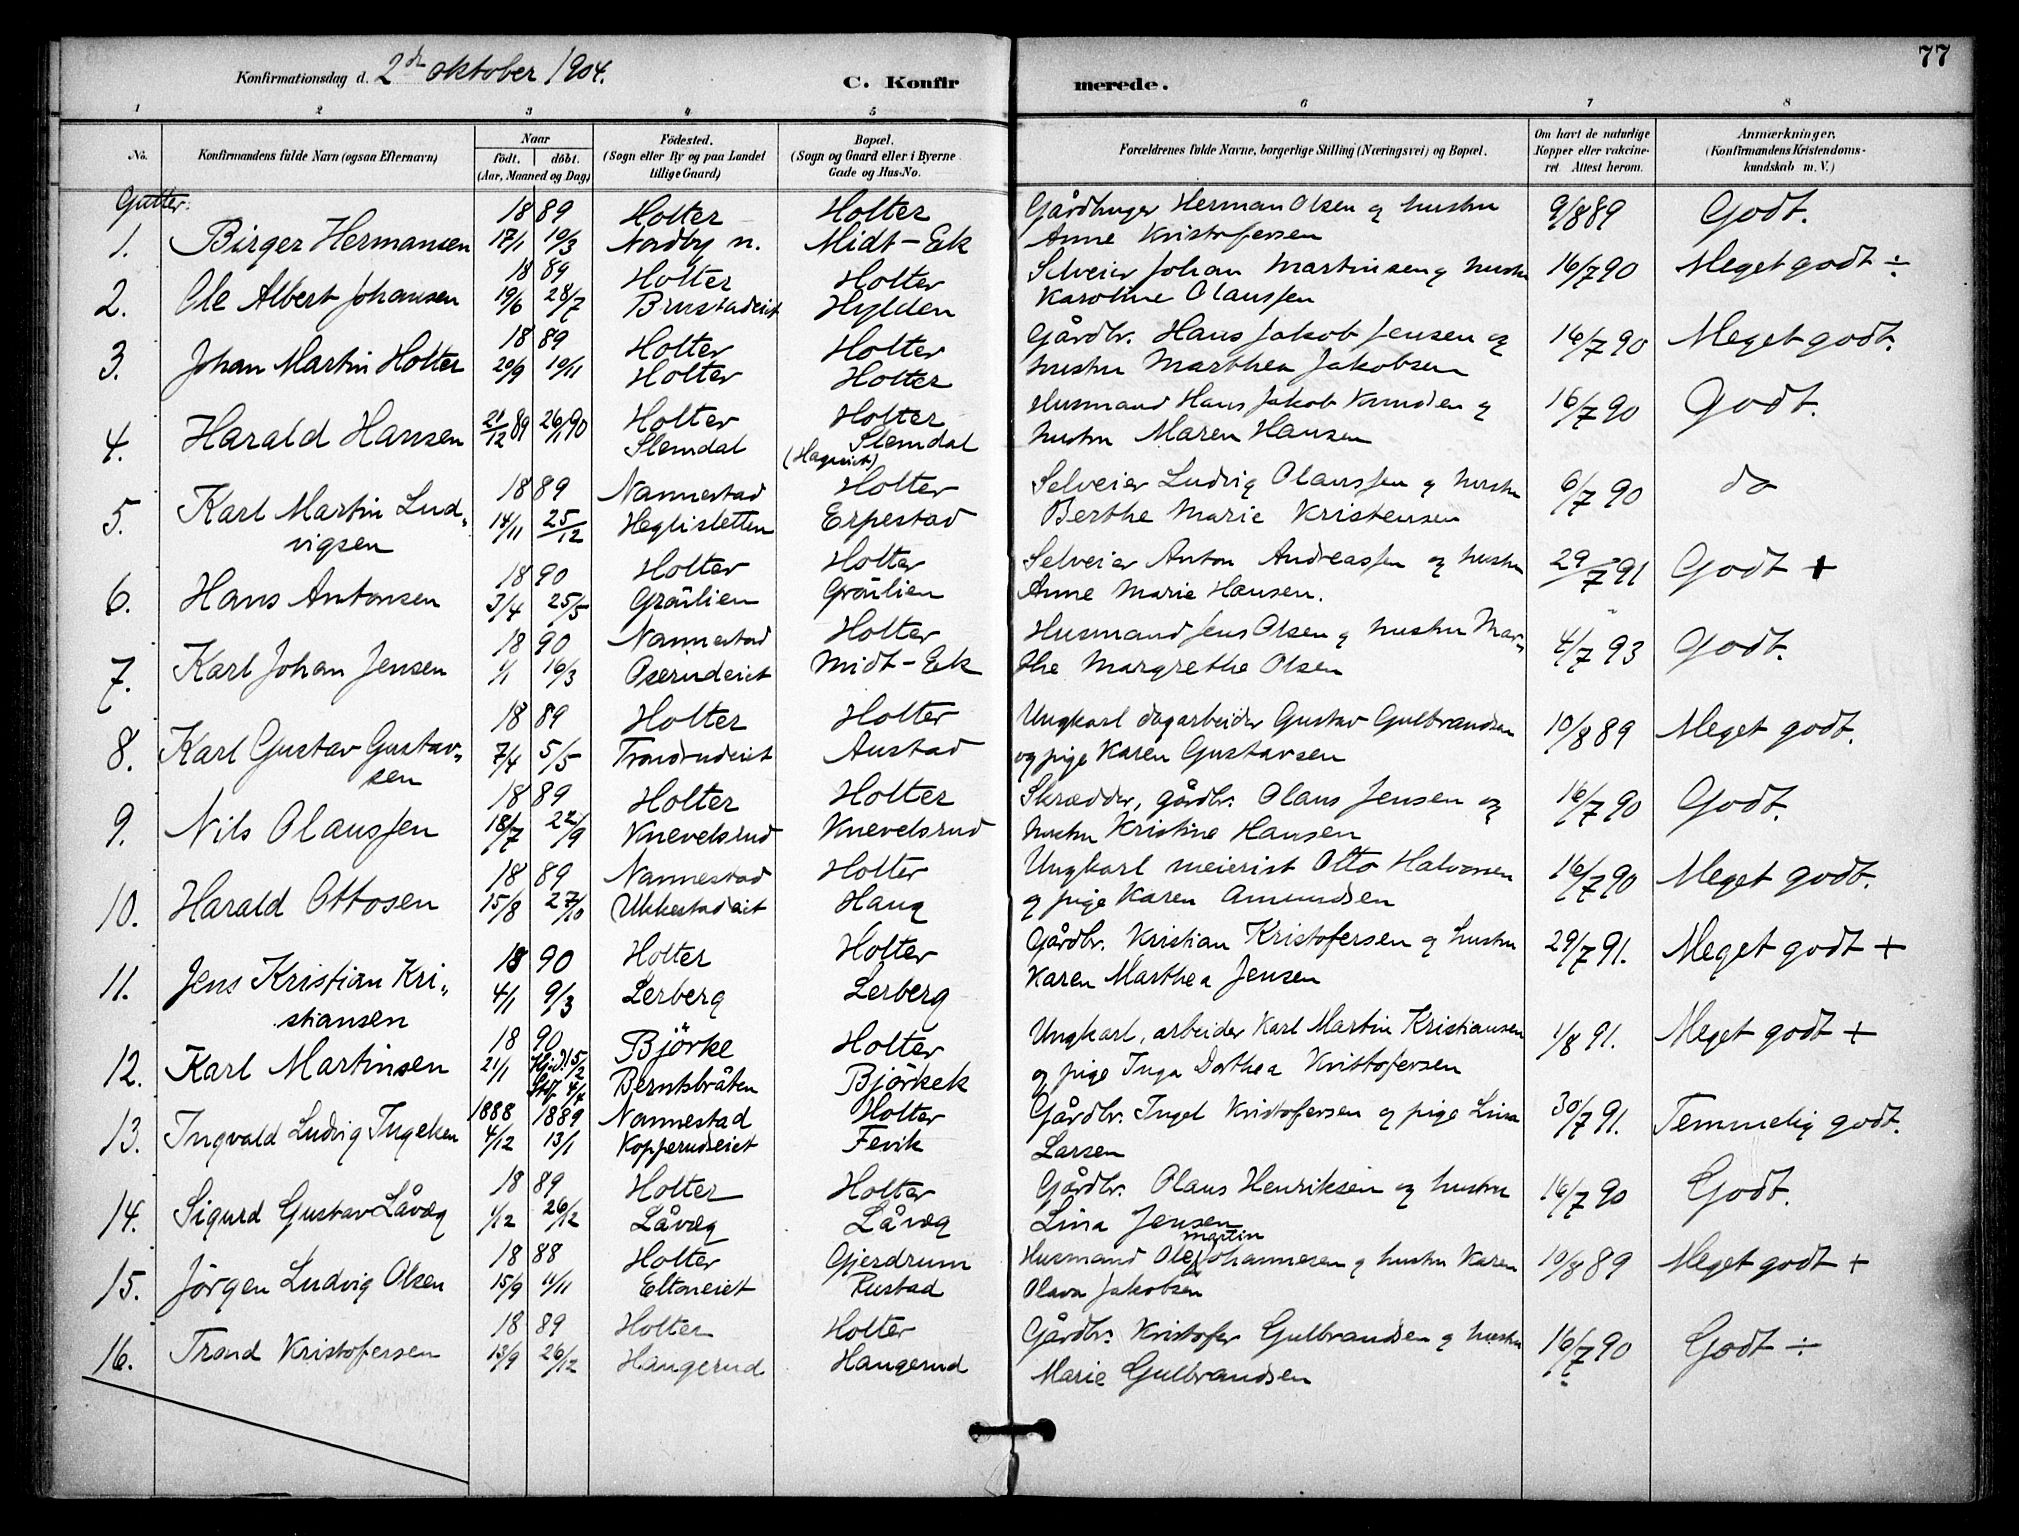 77
Konfirmationsdag d. 2den oktober 1904.
C. Konfirmerede.
1 2 3 4 5 6 7 8
No. Konfirmandens fulde Navn (ogsaa Efternavn) Naar født. døbt. (Aar, Maaned og Dag) Födested. (Sogn eller By og paa Landet tillige Gaard) Bopæl. (Sogn og Gaard eller i Byerne Gade og Hus-No. Forældrenes fulde Navne, borgerlige Stilling (Næringsvei) og Bopæl. Om havt de naturlige Kopper eller vakcineret Attest herom. Anmærkninger. (Konfirmandens Kristendomskundskab m. V.)
Gutter:
18 89 Holter Holter Gårdbruger Herman Olsen og hustru 9/8 89 Godt.
1. Birger Hermansen 17/1 10/3 Nordby n. Midt-Ek Anne Kristofersen
18 89 Holter Holter Selveier Johan Martinsen og hustru 16/7 90 Meget godt ÷
2. Ole Albert Johansen 19/6 28/7 Brustadeiet Hylden Karoline Olaussen
18 89 Holter Holter Gårdbr. Hans Jakob Jensen og 16/7 90 Meget godt.
3. Johan Martin Holter 20/9 10/11 Holter Holter hustru Marthea Jakobsen
4. Harald Hansen 21/12 89 26/1 90 Holter Holter Husmand Hans Jakob Knudsen og 16/7 90 Godt.
Slemdal Slemdal hustru Maren Hansen
18 89 Nannestad Holter Selveier Ludvig Olaussen og hustru 6/7 90 do
5. Karl Martin Lud- 14/11 25/12 Heglisletten Erpestad Berthe Marie Kristensen
vigsen
18 90 Holter Holter Selveier Anton Andreassen og hustru 29/7 91 Godt +
6. Hans Antonsen 3/4 25/5 Gråilien Gråilien Anne Marie Hansen.
18 90 Nannestad Holter Husmand Jens Olsen og hustru Mar- 4/7 93 Godt.
7. Karl Johan Jensen 1/1 16/3 Oserudeiet Midt-Ek the Margrethe Olsen
18 89 Holter Holter Ungkarl dagarbeider Gustav Gulbrandsen 10/8 89 Meget godt.
8. Karl Gustav Gustav- 7/4 5/5 Trondrudeiet Austad og pige Karen Gustavsen
sen
18 89 Holter Holter Skrædder, gårdbr. Olaus Jensen og 16/7 90 Godt.
9. Nils Olaussen 18/7 22/9 Knevelsrud Knevelsrud hustru Kristine Hansen
18 89 Nannestad Holter Ungkarl meierist Otto Halvorsen 16/7 90 Meget godt.
10. Harald Ottosen 15/8 27/10 Ukkestadeiet Haug og pige Karen Amundsen
18 90 Holter Holter Gårdbr. Kristian Kristofersen og hustru 29/7 91. Meget godt +
11. Jens Kristian Kri- 4/1 9/3 Lerberg Lerberg Karen Marthea Jensen
stiansen
18 90 Björke Holter Ungkarl, arbeider Karl Martin Kristiansen 1/8 91. Meget godt +
12. Karl Martinsen 21/1 Hjd. 15/2 Stf. 4/4 Berntsbråten Björkek og pige Inga Dorthea Kristofersen
1888 1889 Nannestad Holter Gårdbr. Ingel Kristofersen og pige Lina 30/7 91. Temmelig godt.
13. Ingvald Ludvig Ingelsen 4/12 13/1 Kopperudeiet Fevik Larsen
18 89 Holter Holter Gårdbr. Olaus Henriksen og hustru 16/7 90 Godt.
14. Sigurd Gustav Låvæg 1/12 26/12 Låvæg Låvæg Lina Jensen
18 88 Holter Gjerdrum Husmand Ole Martin Johannesen og hustru Karen 10/8 89 Meget godt +
15. Jörgen Ludvig Olsen 15/9 11/11 Eltoneiet Rustad Olava Jakobsen
18 89 Holter Holter Gårdbr. Kristofer Gulbrandsen og hustru 16/7 90 Godt ÷
16. Trond Kristofersen 13/9 26/12 Haugerud Haugerud Marie Gulbrandsen